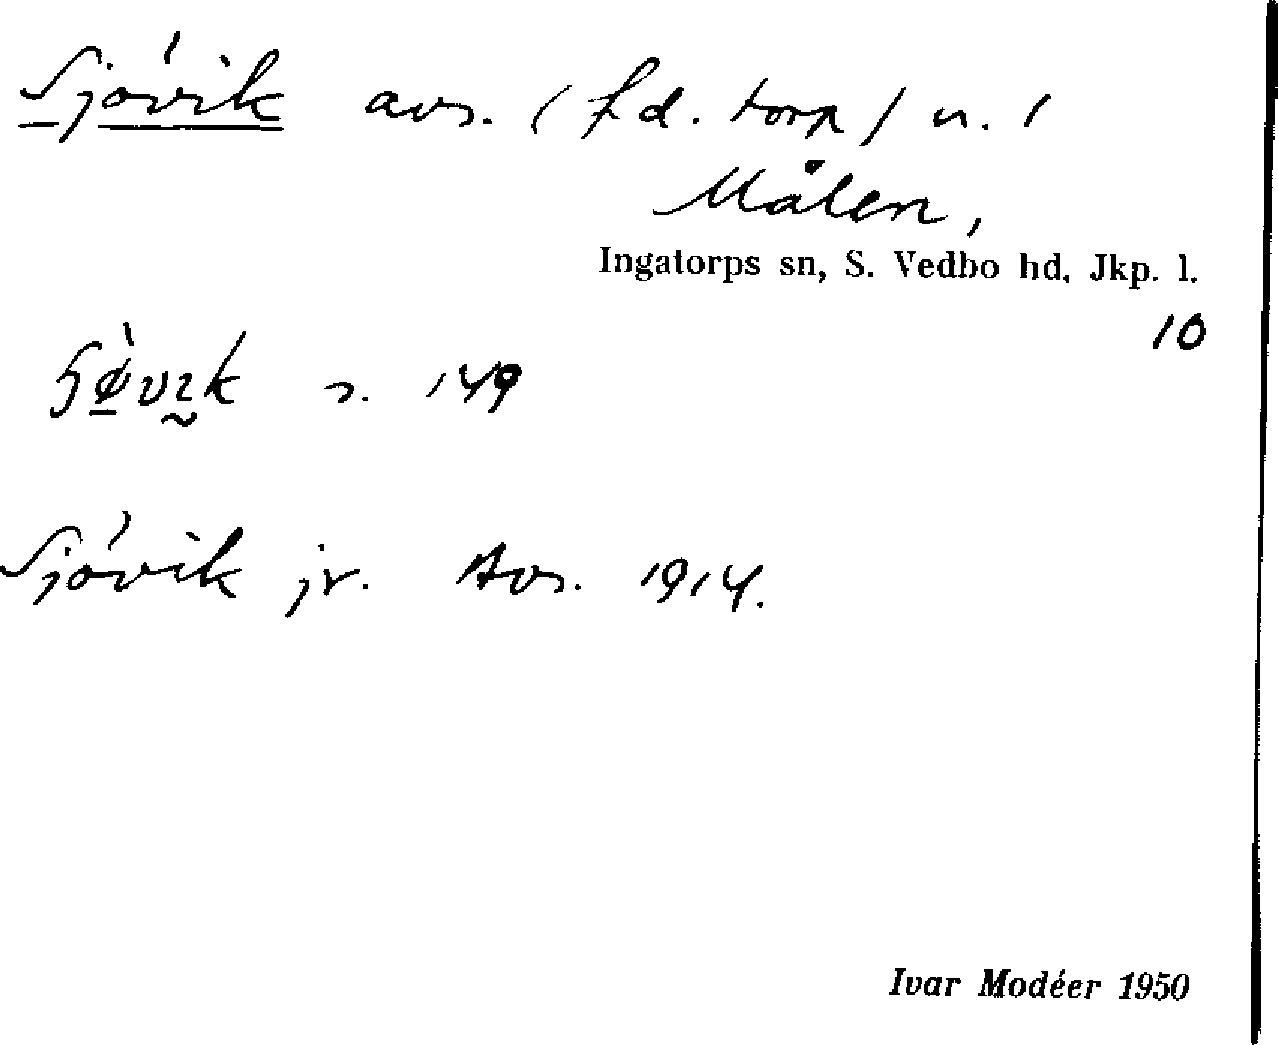 Sjövik avs. (f.d. torp) n. 1
Målen,
Ingatorps sn, S. Vedbo hd. Jkp. l.
10
s. 149
Sjövik jr. Avs. 1914.
Ivar Modéer 1950